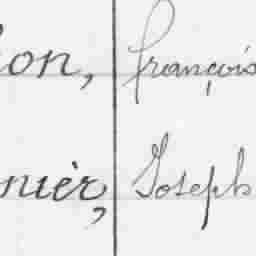 on, François
nier, Joseph